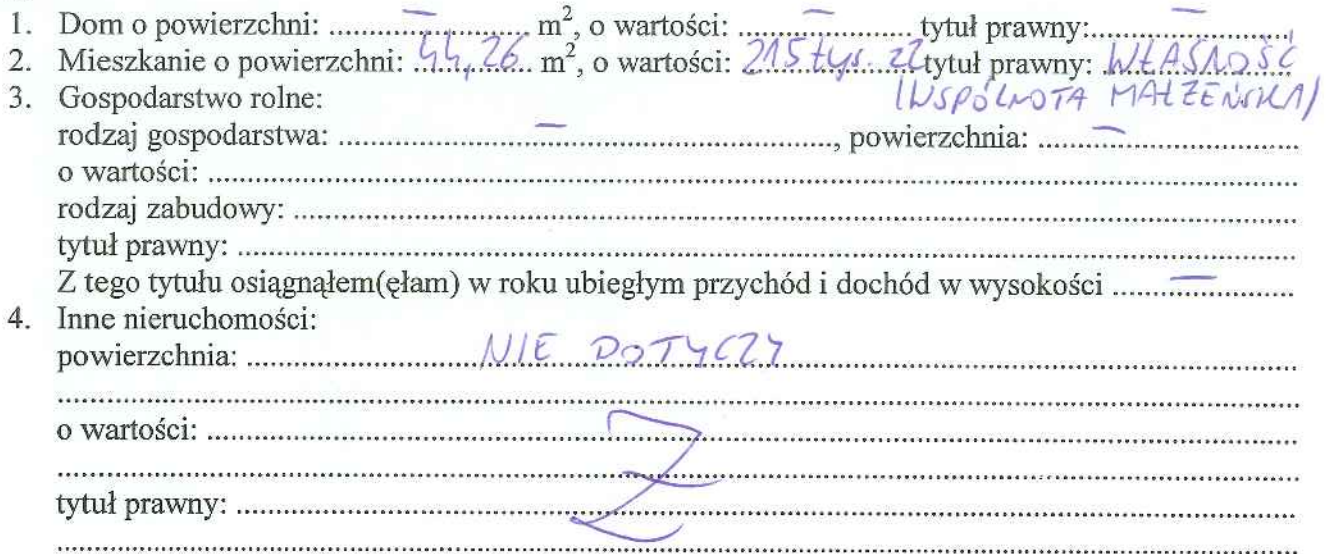 1. Dom o powierzchni: ....—.... m², o wartości: ....—.... tytuł prawny:....—....
2. Mieszkanie o powierzchni: 44,26 m², o wartości: 215 tys. zł tytuł prawny: WŁASNOŚĆ
(WSPÓLNOTA MAŁŻEŃSKA)
3. Gospodarstwo rolne:
rodzaj gospodarstwa: ....—...., powierzchnia: ....—....
o wartości: ....
rodzaj zabudowy: ....
tytuł prawny: ....
Z tego tytułu osiągnąłem(ęłam) w roku ubiegłym przychód i dochód w wysokości ....—....
4. Inne nieruchomości:
powierzchnia: .... NIE DOTYCZY ....
....
o wartości: ....
....
tytuł prawny: ....
....